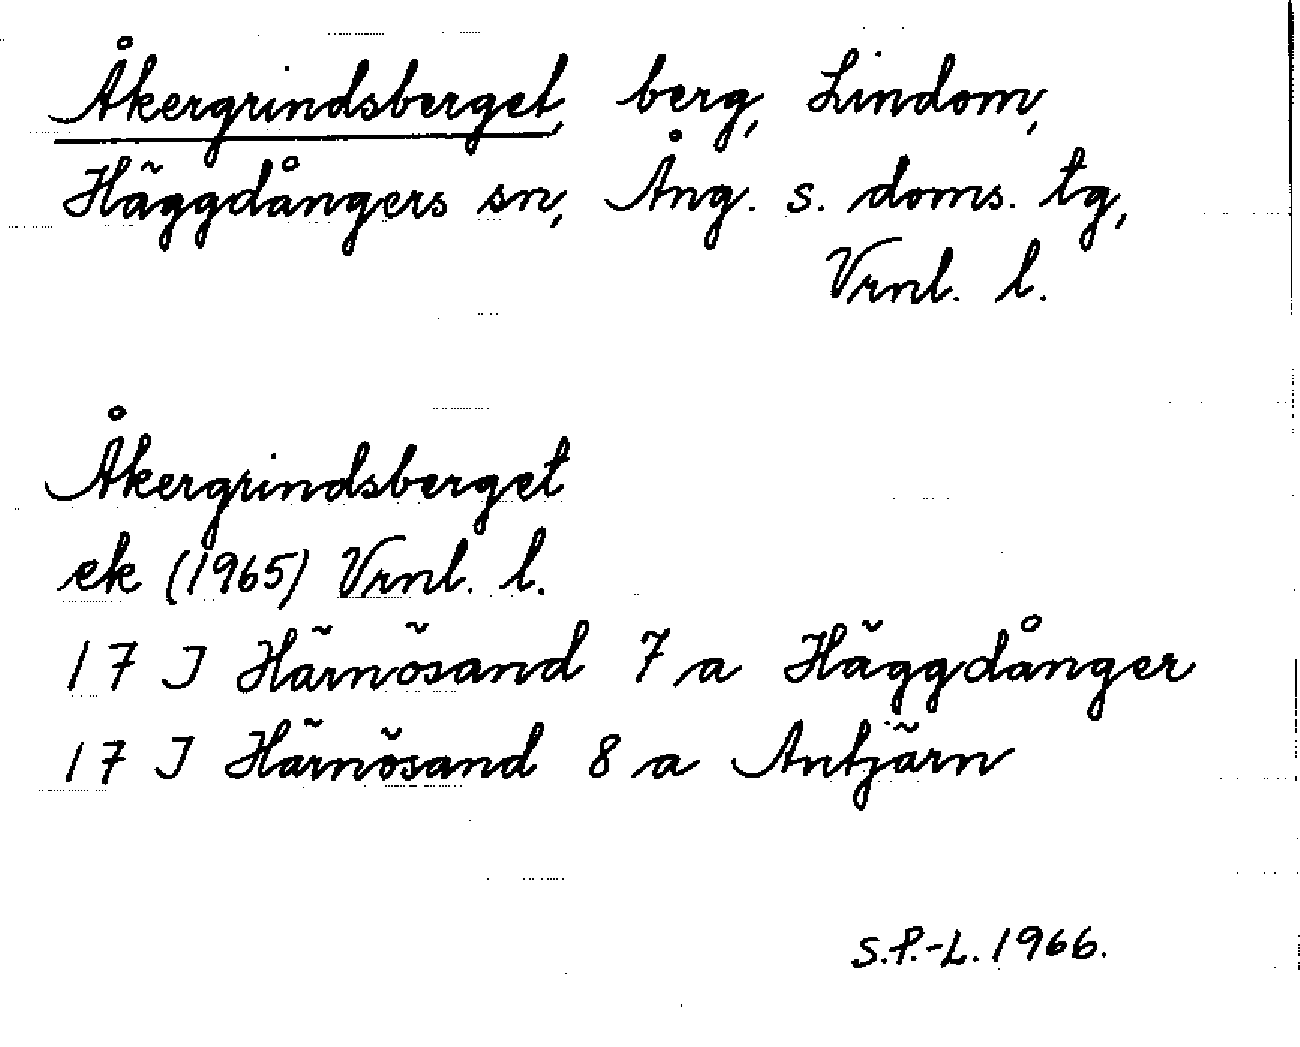 Åkergrindsberget, berg, Lindom,
Häggdångers sn, Ång. s. doms. tg,
Vrnl. l.
Åkergrindsberget
ek (1965) Vrnl. l.
17 J Härnösand 7 a Häggdånger
17 J Härnösand 8 a Antjärn
S.P.-L. 1966.